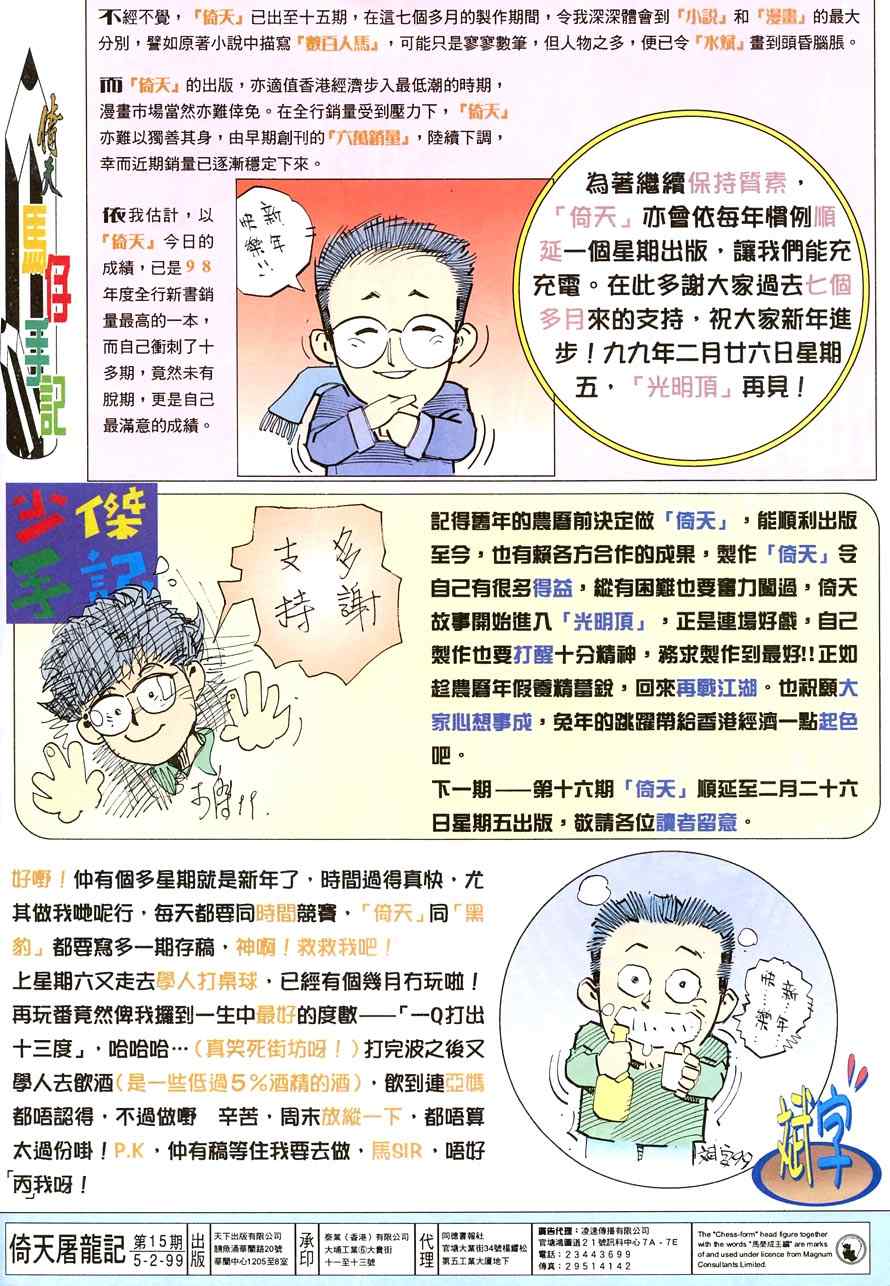 不經不覺，「倚天」已出至十五期，在這七個多月的製作期間，令我深深體會到「小說」和「漫畫」的最大
分別，譬如原著小說中描寫「數百人馬」，可能只是寥寥數筆，但人物之多，便已令「水斌」畫到頭昏腦脹。
而「倚天」的出版，亦適值香港經濟步入最低潮的時期，
漫畫市場當然亦難倖免。在全行銷量受到壓力下，「倚天」
亦難以獨善其身，由早期創刊的「六萬銷量」，陸續下調，
幸而近期銷量已逐漸穩定下來。
依我估計，以
「倚天」今日的
成績，已是98
年度全行新書銷
量最高的一本，
而自己衝刺了十
多期，竟然未有
脫期，更是自己
最滿意的成績。
新年
快樂!!
為著繼續保持質素，
「倚天」亦會依每年慣例順
延一個星期出版，讓我們能充
充電。在此多謝大家過去七個
多月來的支持，祝大家新年進
步！九九年二月廿六日星期
五，「光明頂」再見！
倚天
手記
少傑
手記
多謝
支持
記得舊年的農曆前決定做「倚天」，能順利出版
至今，也有賴各方合作的成果，製作「倚天」令
自己有很多得益，縱有困難也要奮力闖過，倚天
故事開始進入「光明頂」，正是連場好戲，自己
製作也要打醒十分精神，務求製作到最好!!正如
趁農曆年假養精蓄銳，回來再戰江湖。也祝願大
家心想事成，兔年的跳躍帶給香港經濟一點起色
吧。
下一期——第十六期「倚天」順延至二月二十六
日星期五出版，敬請各位讀者留意。
好嘢！仲有個多星期就是新年了，時間過得真快，尤
其做我哋呢行，每天都要同時間競賽，「倚天」同「黑
豹」都要寫多一期存稿，神啊！救救我吧！
上星期六又走去學人打桌球，已經有個幾月冇玩啦！
再玩番竟然俾我攞到一生中最好的度數——「一Q打出
十三度」，哈哈哈…（真笑死街坊呀！）打完波之後又
學人去飲酒（是一些低過5%酒精的酒），飲到連亞媽
都唔認得，不過做嘢　辛苦，周末放縱一下，都唔算
太過份啩！P.K，仲有稿等住我要去做，馬SIR，唔好
「丙」我呀！
新…年…
快…樂…
斌宇99
斌宇
倚天屠龍記
第15期
5-2-99
出版
天下出版有限公司
鰂魚涌華蘭路20號
華蘭中心1205至8室
承印
泰業（香港）有限公司
大埔工業⑥大貴街
十一至十三號
代理
同德書報社
官塘大業街34號楊耀松
第五工業大廈地下
廣告代理：凌速傳播有限公司
官塘鴻圖道21號訊科中心7A-7E
電話：23443699
傳真：29514142
The "Chess-form" head figure together
with the words "馬榮成主編" are marks
of and used under licence from Magnum
Consultants Limited.